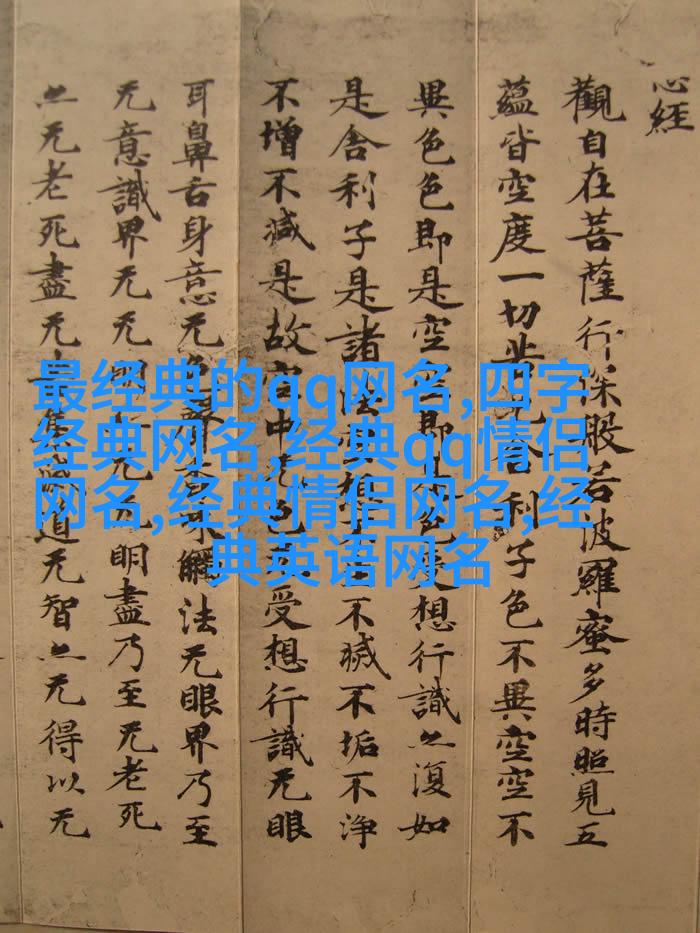 心經
觀自在菩薩行深般若波羅蜜多時照見五
蘊皆空度一切苦厄舍利子色不異空空不
異色色即是空空即是色受想行識亦復如
是舍利子是諸法空相不生不滅不垢不淨
不增不減是故空中无色无受想行識无眼
耳鼻舌身意无色聲香味觸法无眼界乃至
无意識界无无明亦无无明盡乃至无老死
亦无老死盡无苦集滅道无智亦无得以无
最经典的qq网名,四字
经典网名,经典qq情侣
网名,经典情侣网名,经
典英语网名